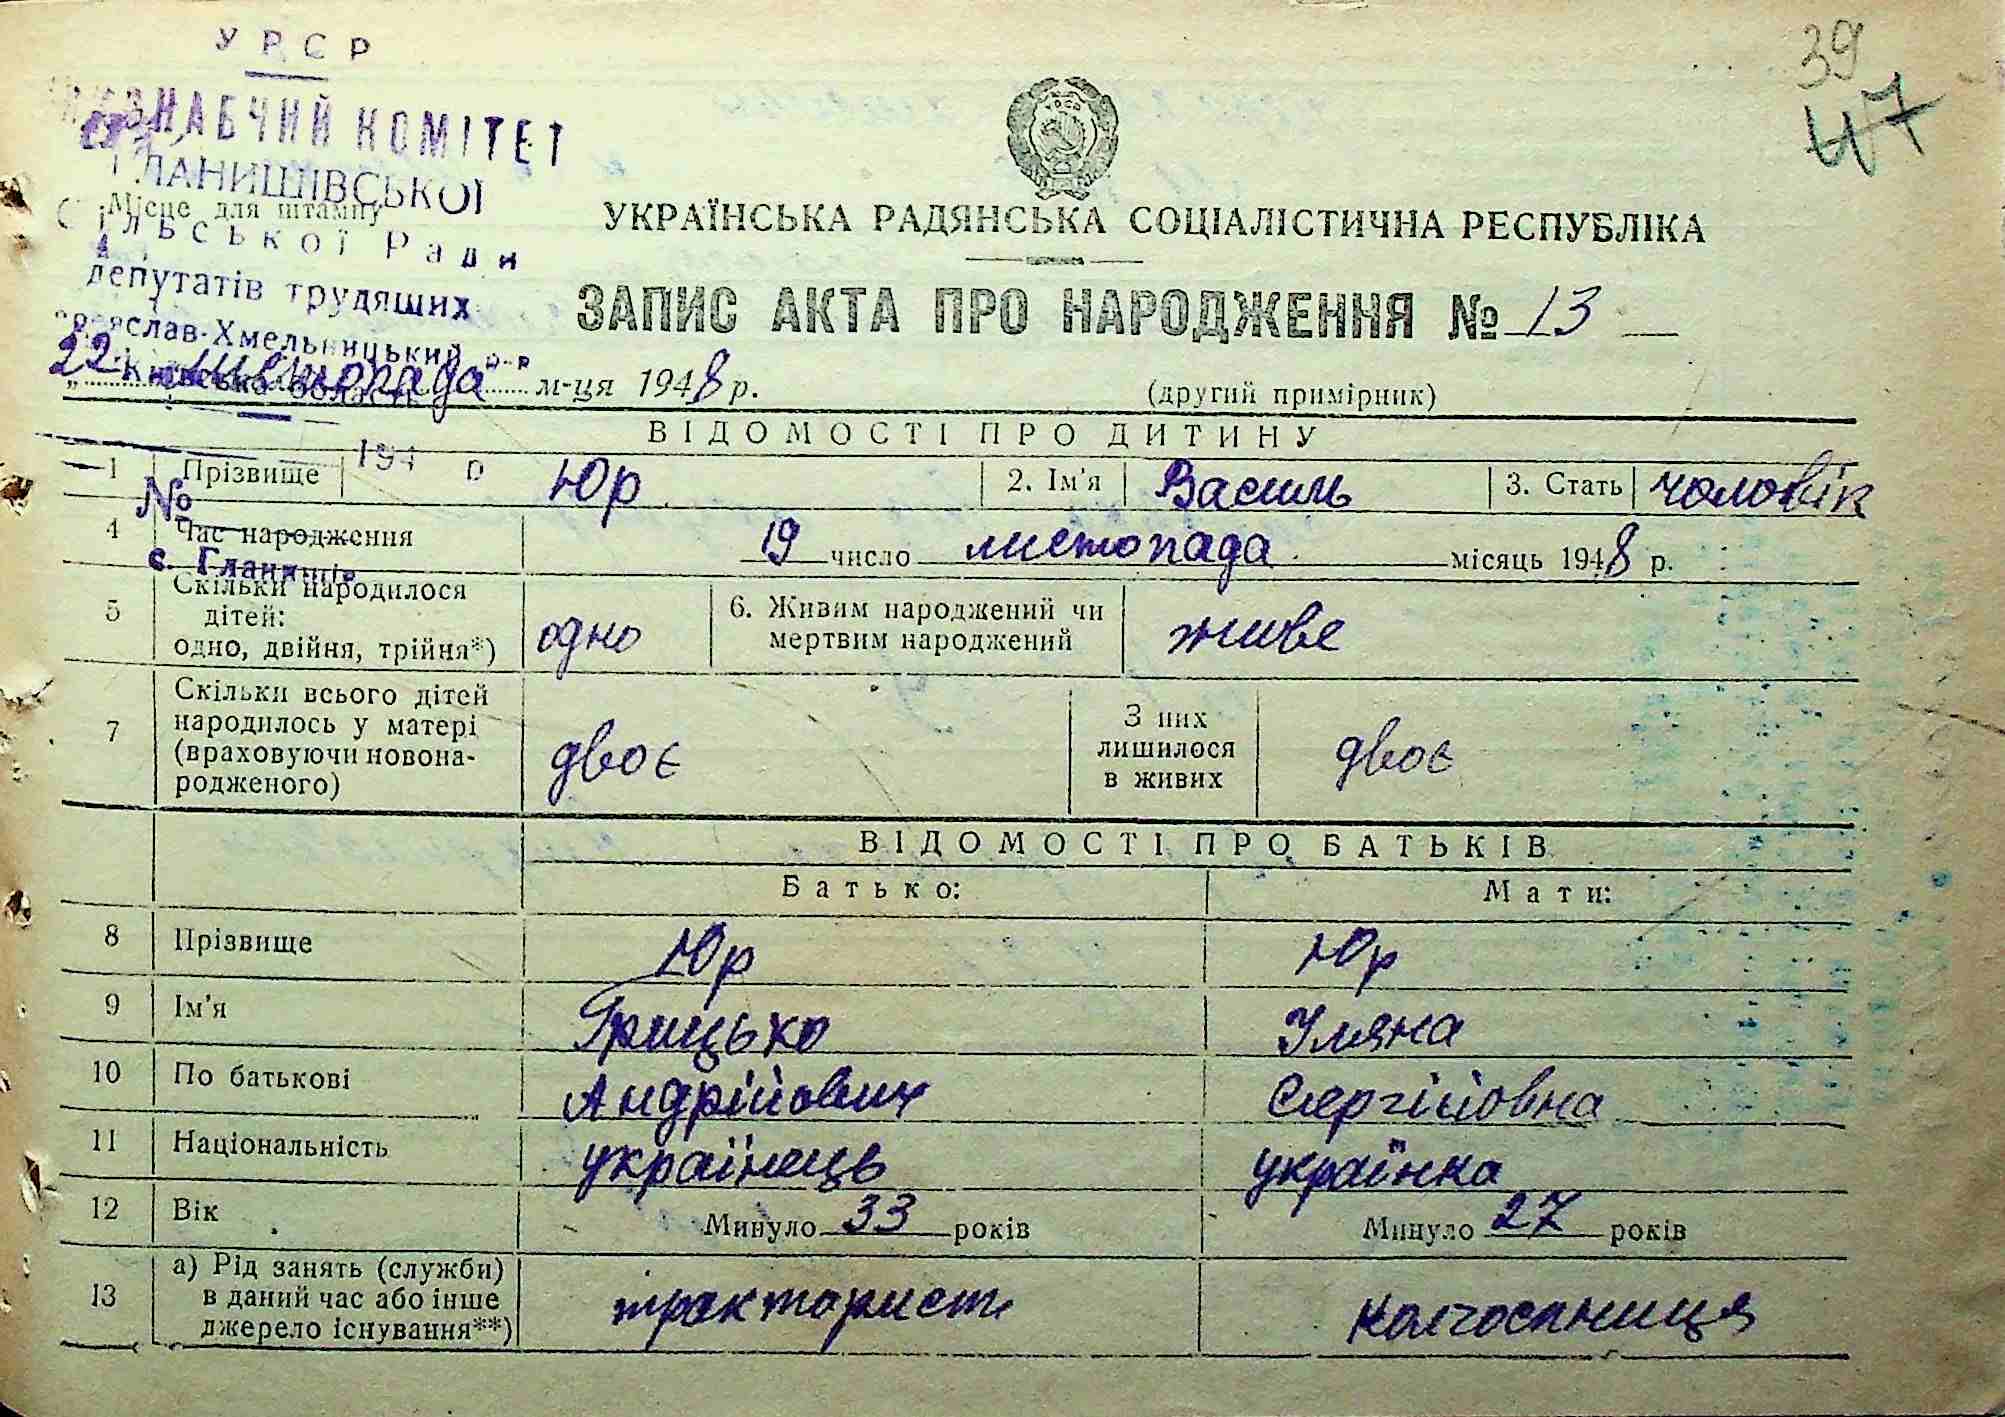 УРСР
39
47
ВИКОНАВЧИЙ КОМІТЕТ
ГЛАНИШІВСЬКОЇ
Місце для штампу
Сільської Ради
депутатів трудящих
Переяслав-Хмельницький р-н
Київська область
УРСР
УКРАЇНСЬКА РАДЯНСЬКА СОЦІАЛІСТИЧНА РЕСПУБЛІКА
ЗАПИС АКТА ПРО НАРОДЖЕННЯ № 13
"22" листопада м-ця 1948 р.
(другий примірник)
ВІДОМОСТІ ПРО ДИТИНУ
194 р
1 Прізвище Юр 2. Ім'я Василь 3. Стать чоловік
№
4 Час народження 19 число листопада місяць 1948 р.
с. Гланишів
5 Скільки народилося
дітей:
одно, двійня, трійня*) одно
6. Живим народжений чи
мертвим народжений живе
7 Скільки всього дітей
народилось у матері
(враховуючи новона-
родженого) двоє
З них
лишилося
в живих двоє
ВІДОМОСТІ ПРО БАТЬКІВ
Батько: Мати:
8 Прізвище Юр Юр
9 Ім'я Грицько Уляна
10 По батькові Андрійович Сергіїовна
11 Національність українець українка
12 Вік Минуло 33 років Минуло 27 років
13 а) Рід занять (служби)
в даний час або інше
джерело існування**) тракторист колгоспниця